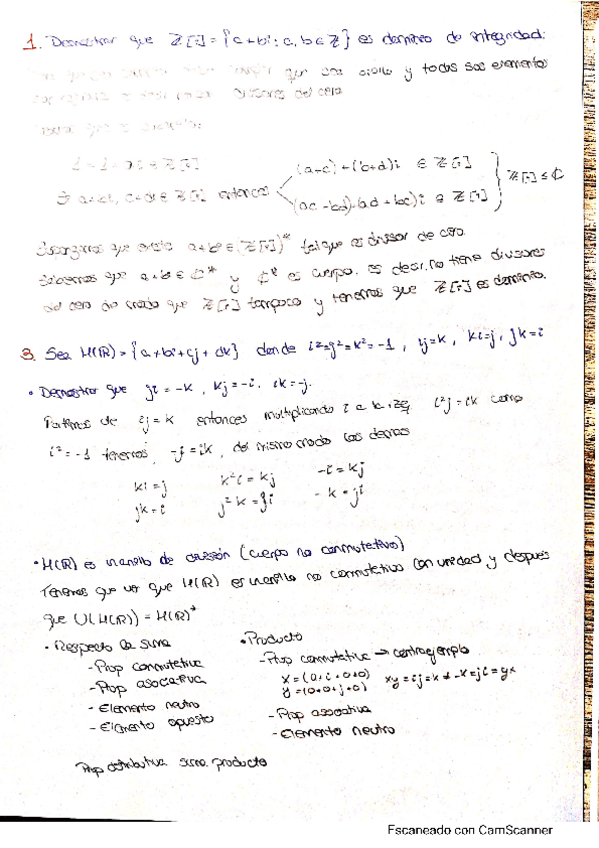 1. Demostrar que Z[i] = {a+bi : a, b ∈ Z} es dominio de integridad.
que un anillo y todos sus elementos
divisores del cero
1 = 1 + 0i ∈ Z[i]
a+bi, c+di ∈ Z[i] entonces
(a+c) + (b+d)i ∈ Z[i]
(ac - bd) + (ad + bc)i ∈ Z[i]
Z[i] ≤ C
Supongamos que existe a+bi ∈ (Z[i])* tal que es divisor de cero.
Sabemos que a+bi ∈ C* y C* es cuerpo, es decir, no tiene divisores
del cero de modo que Z[i] tampoco y tenemos que Z[i] es dominio.
3. Sea H(R) = {a + bi + cj + dk} donde i²=j²=k²=-1, ij=k, ki=j, jk=i
• Demostrar que ji = -k, kj = -i, ik = -j.
Partimos de ij = k entonces multiplicando i a la izq i²j = ik como
i² = -1 tenemos, -j = ik, del mismo modo las demás
ki = j k²i = kj -i = kj
jk = i j²k = ji -k = ji
• H(R) es un anillo de división (cuerpo no conmutativo)
Tenemos que ver que H(R) es un anillo no conmutativo con unidad y después
que U(H(R)) = H(R)*
• Respecto la suma
- Prop conmutativa
- Prop asociativa
- Elemento neutro
- Elemento opuesto
• Producto
- Prop conmutativa → contraejemplo
x = (0+i+0+0)
y = (0+0+j+0)
xy = ij = k ≠ -k = ji = yx
- Prop asociativa
- Elemento neutro
Prop distributiva suma producto
Escaneado con CamScanner